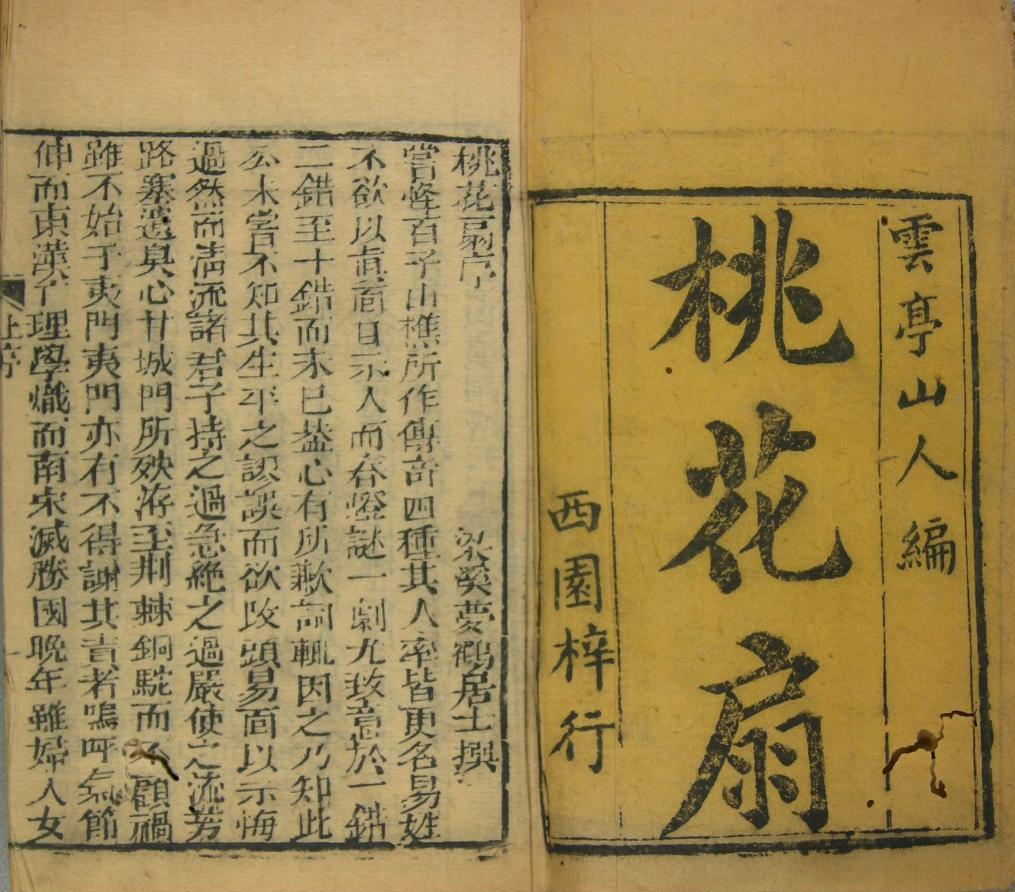 雲亭山人編
桃花扇
西園梓行
桃花扇序
梁溪夢鶴居士撰
嘗怪百子山樵所作傳奇四種其人率皆更名易姓
不欲以眞面目示人而春燈謎一劇尤致意於一錯
二錯至十錯而未已蓋心有所歉詞輒因之乃知此
公未嘗不知其生平之謬誤而欲改頭易面以示悔
過然而清流諸君子持之過急絶之過嚴使之流芳
路塞遺臭心甘城門所殃洊至荆棘銅駝而不顧禍
雖不始于夷門夷門亦有不得謝其責者嗚呼氣節
伸而東漢亡理學熾而南宋滅勝國晚年雖婦人女
上序
一